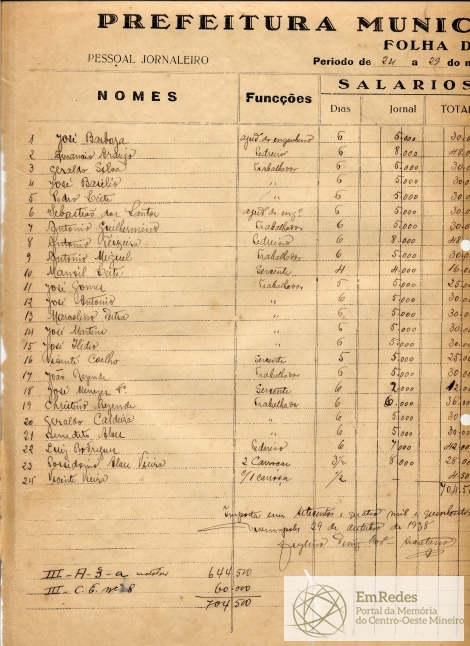 PREFEITURA MUNIC
FOLHA D
PESSOAL JORNALEIRO Periodo de 24 a 29 do m
NOMES Funcções SALARIOS
Dias Jornal TOTA
1 José Barboza ajud. do engenheiro 6 5.000 30.0
2 Araujo Pedreiro 6 8.000 48.0
3 Geraldo Silva Trabalhador 6 5.000 30.0
4 José Basilio " 6 5.000 30.0
5 Pedro Leite " 6 5.000 30.0
6 Sebastião dos Santos ajud. do engº 6 5.000 30.0
7 Antonio Guilhermino Trabalhador 6 5.000 30.0
8 Antonio Pedreiro 6 8.000 48.0
9 Antonio Miguel Trabalhador 6 5.000 30.0
10 Manoel Leite Servente 4 4.000 16.0
11 José Gomes Trabalhador 5 5.000 25.0
12 José Antonio " 6 5.000 30.0
13 Marcelino " 6 5.000 30.0
14 José Martins " 6 5.000 30.0
15 José Ilidio " 6 5.000 30.0
16 Vicente Coelho Servente 5 5.000 25.0
17 João Rezende Trabalhador 6 5.000 30.0
18 José Menezes Servente 6 2.000 12.0
19 Christino Rezende Trabalhador 6 6.000 36.0
20 Geraldo Caldeira " 6 5.000 30
21 Benedito Alves " 6 5.000 30.0
22 Luiz Rodrigues Pedreiro 6 7.000 42.0
23 Possidonio Alves Vieira 2 Carroças 3½ 8.000 28.0
24 Vicente Vieira c/1 carroça ½ 4.50
704.5
Importa em setecentos e quatro mil e quinhentos
29 de outubro de 1938
III-A-3-a 644.500
III-C.E. nº 8 60.000
704.500
EmRedes
Portal da Memória
do Centro-Oeste Mineiro